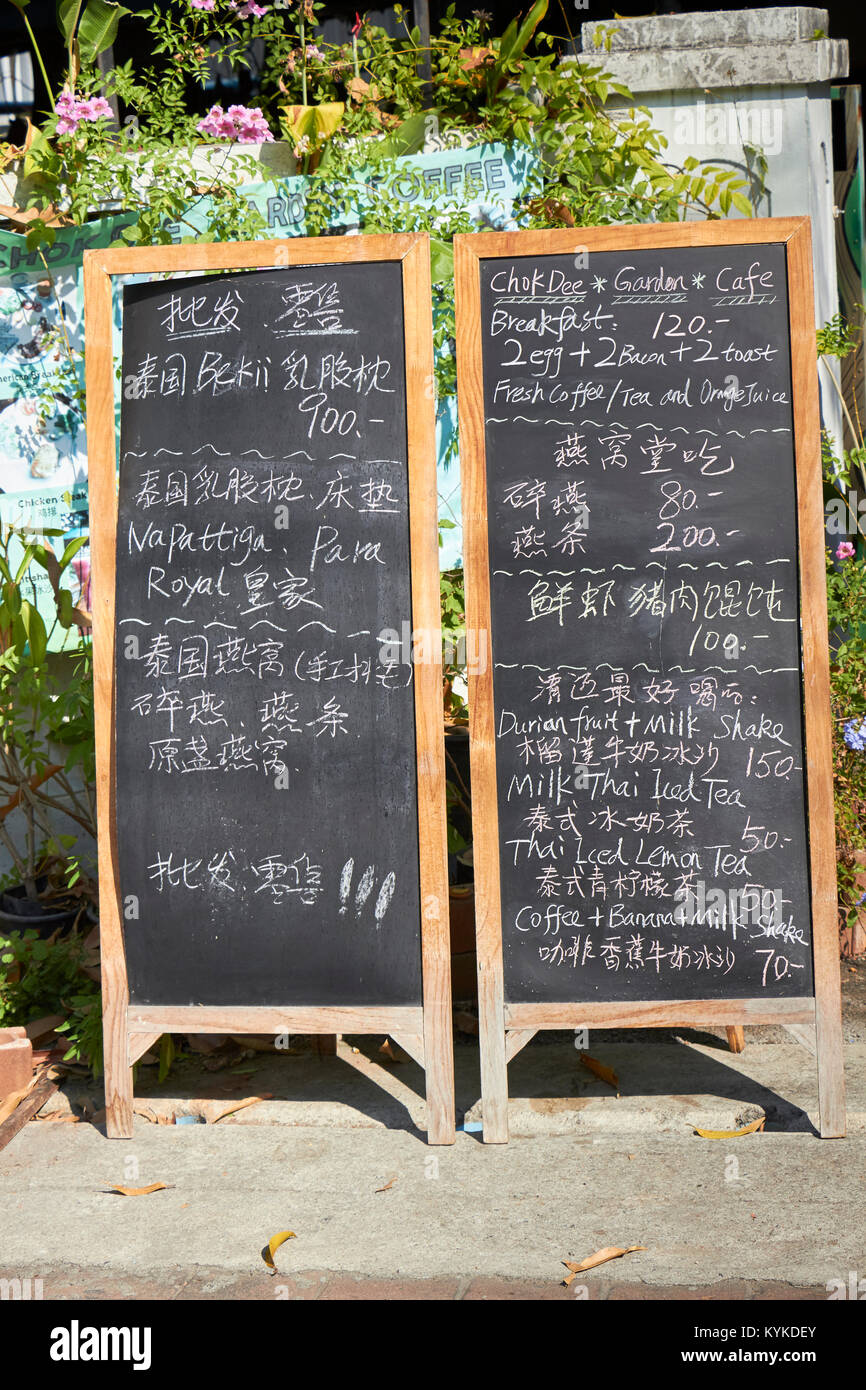 CHOK DEE GARDEN COFFEE
Chicken Steak
鸡排
批发、零售
泰国Bekii乳胶枕
900.-
泰国乳胶枕、床垫
Napattiga、Para
Royal 皇家
泰国燕窝(手工挑毛)
碎燕、燕条
原盏燕窝
批发、零售!!!
ChokDee * Garden * Cafe
Breakfast: 120.-
2egg + 2Bacon + 2toast
Fresh Coffee / Tea and Orange Juice
燕窝堂吃
碎燕 80.-
燕条 200.-
鲜虾猪肉馄饨
100.-
清迈最好喝の:
Durian fruit + Milk Shake
榴莲牛奶冰沙 150.-
Milk Thai Iced Tea
泰式冰奶茶 50.-
Thai Iced Lemon Tea
泰式青柠檬茶 50.-
Coffee + Banana + Milk Shake
咖啡香蕉牛奶冰沙 70.-
alamy
Image ID: KYKDEY
www.alamy.com